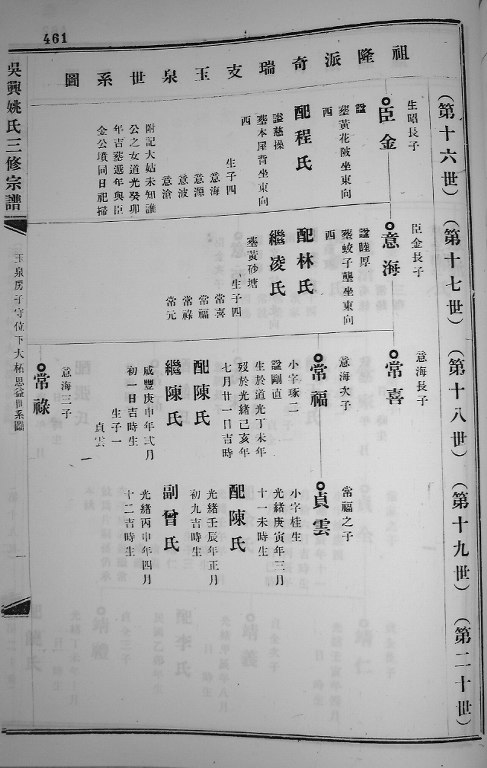 461
祖隆派奇瑞支玉泉世系圖
吳興姚氏三修宗譜
玉泉房子守位下大柘恩益世系圖
(第十六世)
(第十七世)
(第十八世)
(第十九世)
(第二十世)
生昭長子
臣金
諡
塟黃花陂坐東向
西
配程氏
諡慈操
塟本屋背坐東向
西
生子四
意海
意源
意波
意滄
附記大姑未知諱
公之女道光癸卯
年吉塟遞年與臣
金公墳同日祀掃
臣金長子
意海
諡睦厚
塟蛟子壟坐東向
西
配林氏
繼凌氏
塟黃砂塘
生子四
常喜
常福
常祿
常元
意海長子
常喜
意海次子
常福
小字琢二
諡剛直
生於道光丁未年
歿於光緒己亥年
七月廿一日吉時
配陳氏
繼陳氏
咸豐庚申年弍月
初一日吉時生
生子一
貞雲
意海三子
常祿
常福之子
貞雲
小字桂生
光緒庚寅年三月
十一未時生
配陳氏
光緒壬辰年正月
初九吉時生
副曾氏
光緒丙申年四月
十二吉時生